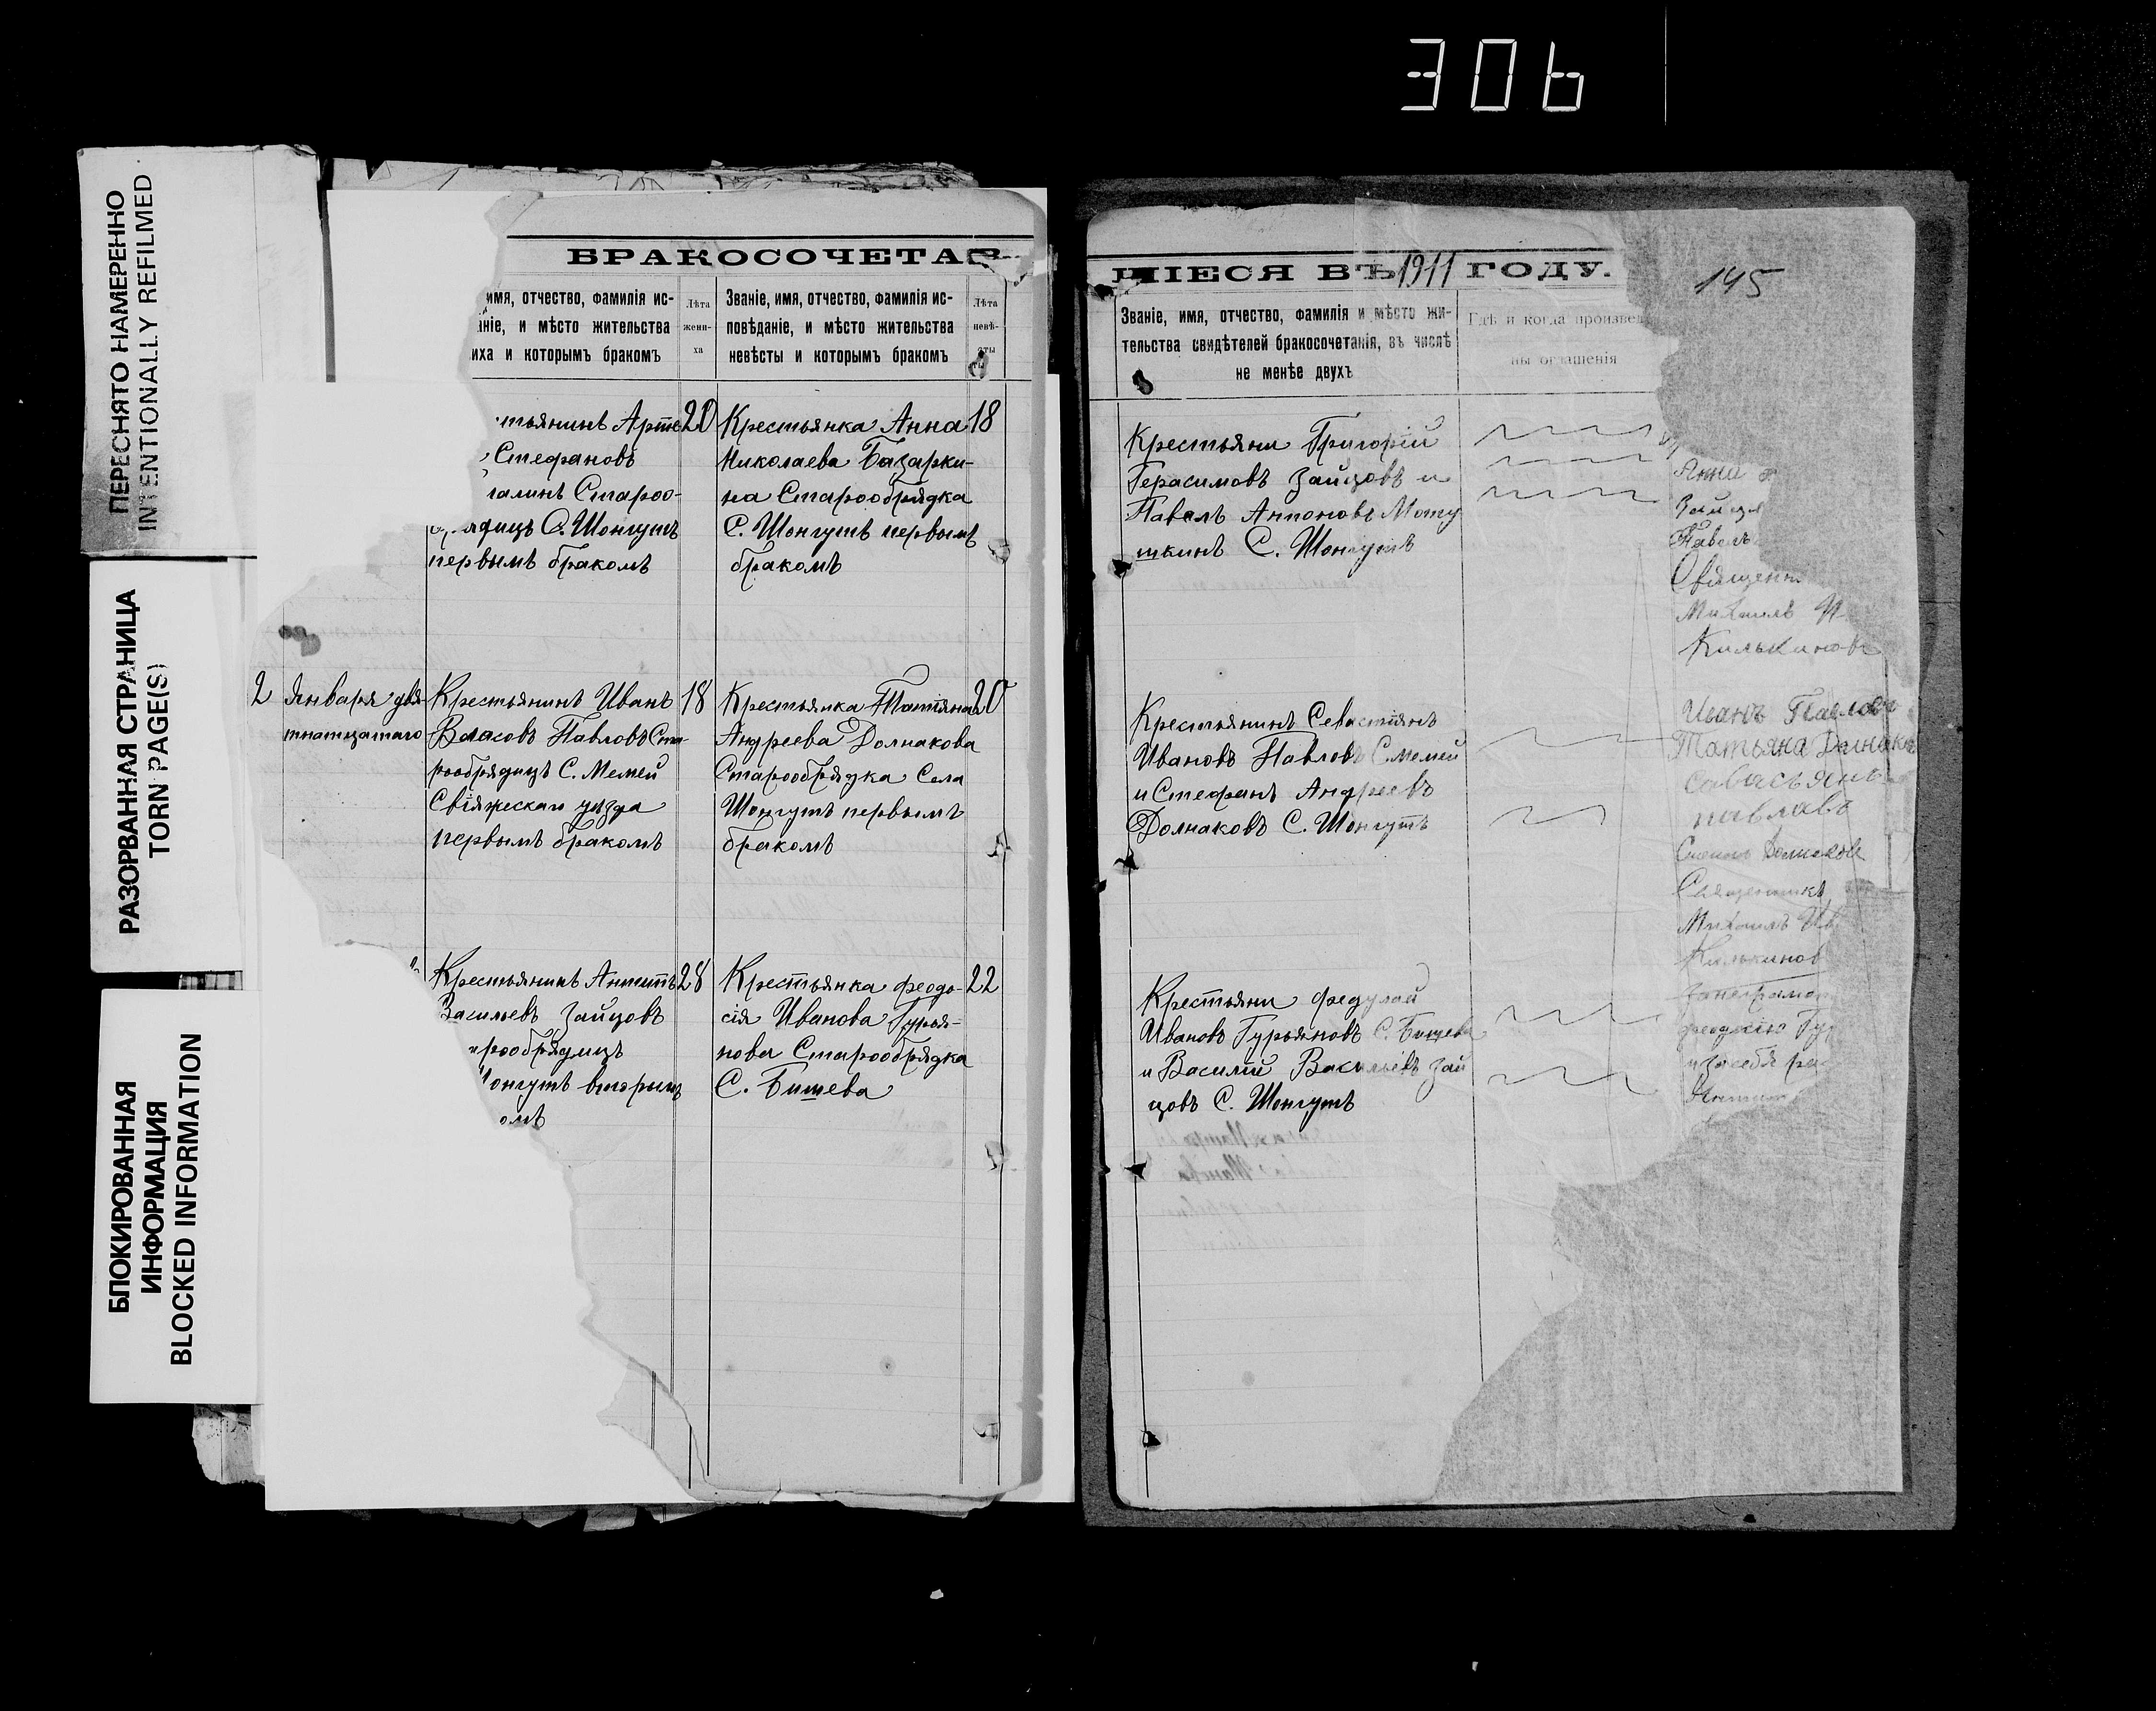 306
ПЕРЕСНЯТО НАМЕРЕННО
INTENTIONALLY REFILMED
РАЗОРВАННАЯ СТРАНИЦА
TORN PAGE(S)
БЛОКИРОВАННАЯ
ИНФОРМАЦИЯ
BLOCKED INFORMATION
БРАКОСОЧЕТАВ
имя, отчество, фамилія ис-
аніе, и мѣсто жительства
иха и которымъ бракомъ
Лѣта
жени-
ха
Званіе, имя, отчество, фамилія ис-
повѣданіе, и мѣсто жительства
невѣсты и которымъ бракомъ
Лѣта
невѣ-
сты
тьянинъ Арте
Стефановъ
галинъ Староо-
рядицъ С. Шонгутъ
первымъ бракомъ
20
Крестьянка Анна
Николаева Базарки-
на Старообрядка
С. Шонгутъ первымъ
бракомъ
18
2
Января два
тнатцатаго
Крестьянинъ Иванъ
Власовъ Павловъ Ста-
рообрядицъ С. Мемей
Свіяжескаго уѣзда
первымъ бракомъ
18
Крестьянка Татіяна
Андреева Долнакова
Старообрядка Села
Шонгутъ первымъ
бракомъ
20
Крестьянинъ Антипъ
Васильевъ Зайцовъ
рообрядицъ
онгутъ вторымъ
омъ
28
Крестьянка Феодо-
сія Иванова Гурья-
нова Старообрядка
С. Бишева
22
ШІЕСЯ ВЪ 1911 ГОДУ.
145
Званіе, имя, отчество, фамилія и мѣсто жи-
тельства свидѣтелей бракосочетанія, въ числѣ
не менѣе двухъ
Гдѣ и когда произвед
ны оглашенія
Крестьяни Григорій
Герасимовъ Зайцовъ и
Павелъ Антоновъ Моту
шкинъ С. Шонгутъ
Анна
Зайцо
Павелъ
Священн
Михаилъ И
Килькиновъ
Крестьянинъ Севастіянъ
Ивановъ Павловъ С. Мемей
и Стефанъ Андреевъ
Долнаковъ С. Шонгутъ
Иванъ Павлов
Татьяна Долнако
Савасьянъ
павлавъ
Долнаковъ
Священникъ
Михаилъ Ив
Килькинов
Крестьяни Федулай
Ивановъ Гурьяновъ С. Бишева
и Василій Васильевъ Зай
цовъ С. Шонгутъ
и за себя